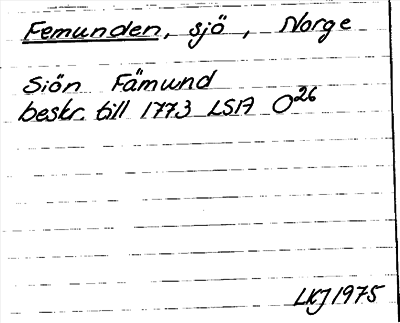 Femunden, sjö, Norge
Siön Fämund
beskr. till 1773 LSA O26
LKJ 1975